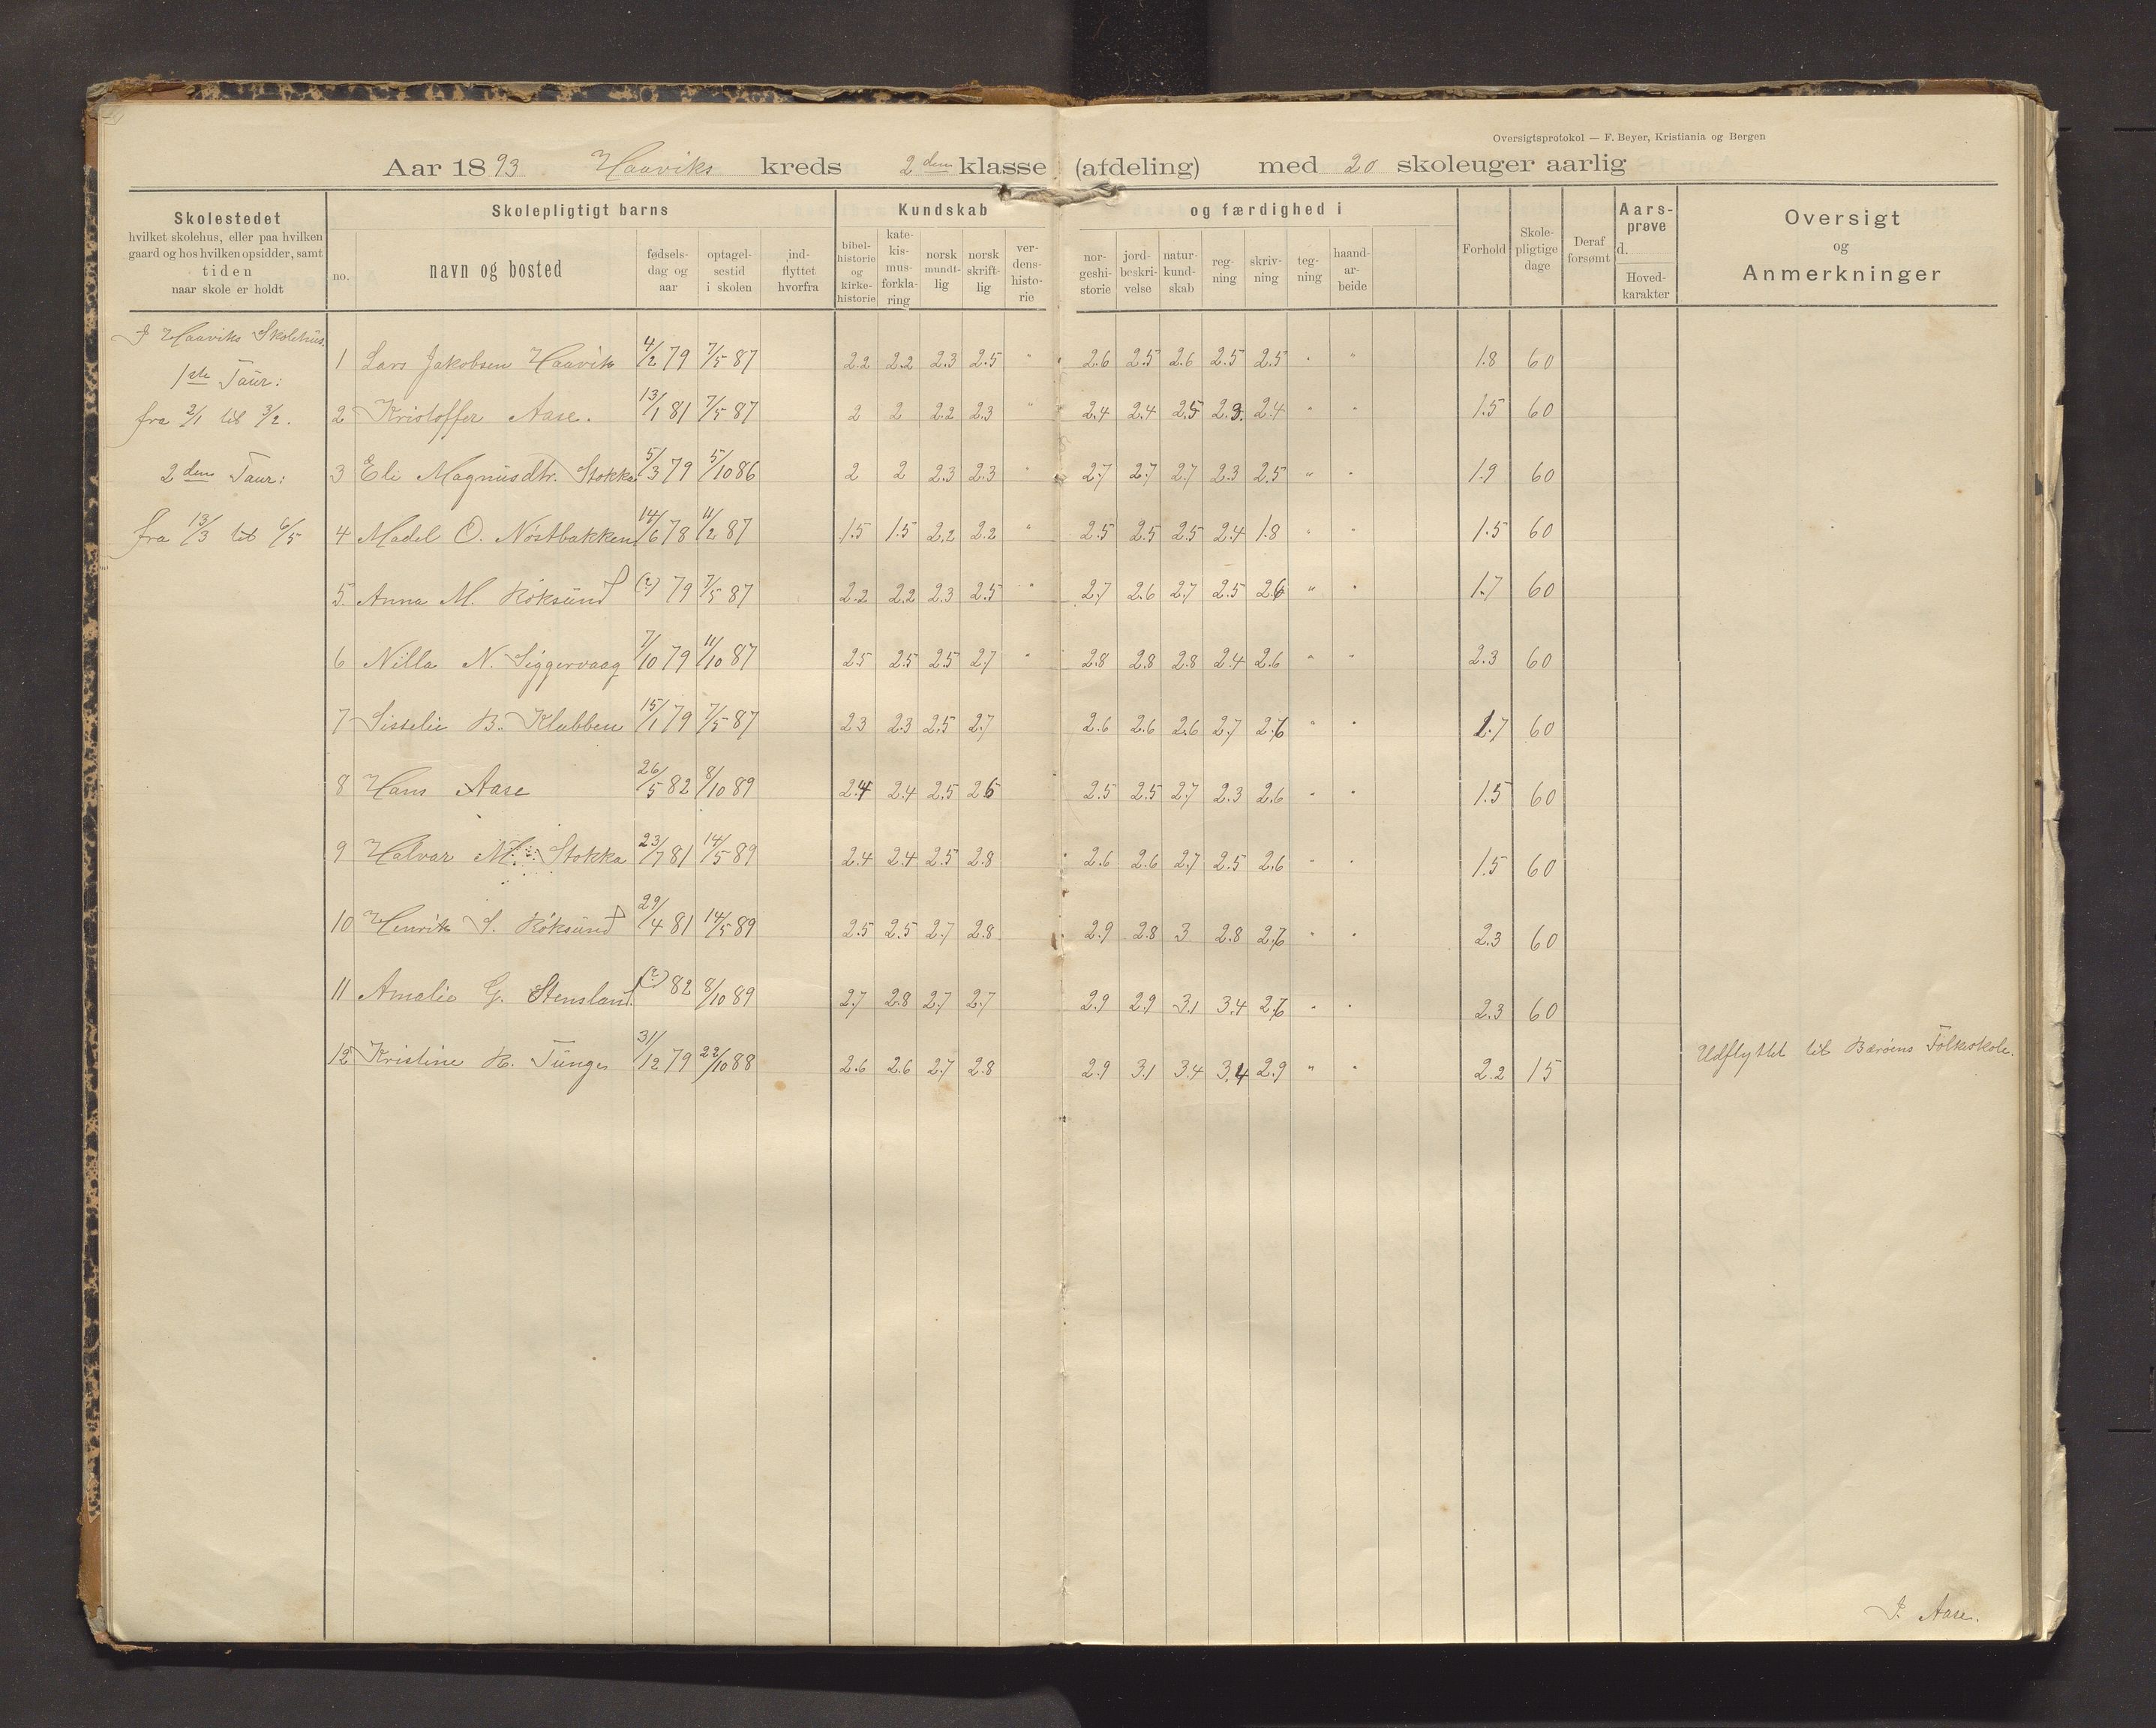 Oversigtsprotokol — F. Beyer, Kristiania og Bergen
Aar 1893 Haaviks kreds 2den klasse (afdeling) med 20 skoleuger aarlig
Skolestedet
hvilket skolehus, eller paa hvilken
gaard og hos hvilken opsidder, samt
tiden
naar skole er holdt
Skolepligtigt barns
no. navn og bosted fødsels-dag og aar optagel-sestid i skolen ind-flyttet hvorfra
Kundskab og færdighed i
bibel-historie og kirke-historie kate-kis-mus-forkla-ring norsk mundt-lig norsk skrift-lig ver-dens-histo-rie nor-geshi-storie jord-beskri-velse natur-kund-skab reg-ning skriv-ning teg-ning haand-ar-beide
Forhold Skole-pligtige dage Deraf forsømt Aars-prøve d. Hoved-karakter
Oversigt
og
Anmerkninger
I Haaviks Skolehus.
1ste Taur:
fra 2/1 til 3/2.
2den Taur:
fra 13/3 til 6/5
1 Lars Jakobsen Haavik 4/2 79 7/5 87 2.2 2.2 2.3 2.5 " 2.6 2.5 2.6 2.5 2.5 " " 1.8 60
2 Kristoffer Aase. 13/1 81 7/5 87 2 2 2.2 2.3 " 2.4 2.4 2.5 2.3. 2.4 " " 1.5 60
3 Eli Magnusdtr. Stokka 5/3 79 5/10 86 2 2 2.3 2.3 " 2.7 2.7 2.7 2.3 2.5 " " 1.9 60
4 Madel O. Nøstbakken 14/6 78 11/2 87 1.5 1.5 2.2 2.2 " 2.5 2.5 2.5 2.4 1.8 " " 1.5 60
5. Anna M. Røksund (?) 79 7/5 87 2.2 2.2 2.3 2.5 " 2.7 2.6 2.7 2.5 2.6 " " 1.7 60
6 Nilla N. Siggervaag 7/10 79 11/10 87 2.5 2.5 2.5 2.7 " 2.8 2.8 2.8 2.4 2.6 " " 2.3 60
7 Sisselie B. Klubben 15/1 79 7/5 87 2.3 2.3 2.5 2.7 2.6 2.6 2.6 2.7 2.6 " " 1.7 60
8 Hans Aase 26/5 82 8/10 89 2.4 2.4 2.5 2.6 2.5 2.5 2.7 2.3 2.6 " " 1.5 60
9 Halvar M. Stokka 23/7 81 14/5 89 2.4 2.4 2.5 2.8 2.6 2.6 2.7 2.5 2.6 " " 1.5 60
10 Henrik S. Røksund 29/4 81 14/5 89 2.5 2.5 2.7 2.8 2.9 2.8 3 2.8 2.6 " " 2.3 60
11 Amalie G. Stensland. (?) 82 8/10 89 2.7 2.8 2.7 2.7 2.9 2.9 3.1 3.4 2.6 " " 2.3 60
12 Kristine R. Tunge 31/12 79 22/10 88 2.6 2.6 2.7 2.8 2.9 3.1 3.4 3.4 2.9 " " 2.2 15 Udflyttet til Bærøens Folkeskole.
I. Aase.